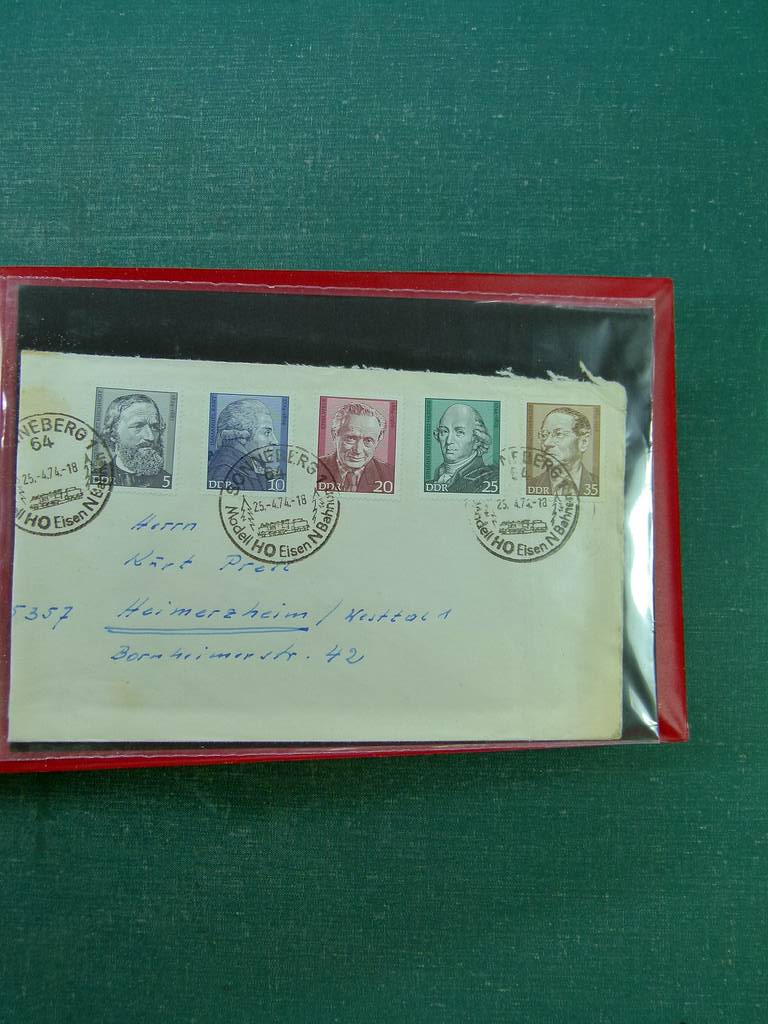 NNEBERG 1
64
25.-4.74.-18
ell HO Eisen N Bahnen
SONNEBERG 1
64
25.-4.74.-18
Modell HO Eisen N Bahnen
NNEBERG
64
25. 4.74.-18
Modell HO Eisen N Bahnen
5
DDR 10
DDR 20
DDR 25
DDR 35
Herrn
Kurt
5357 Heimerzheim /
Bornheimerstr. 42